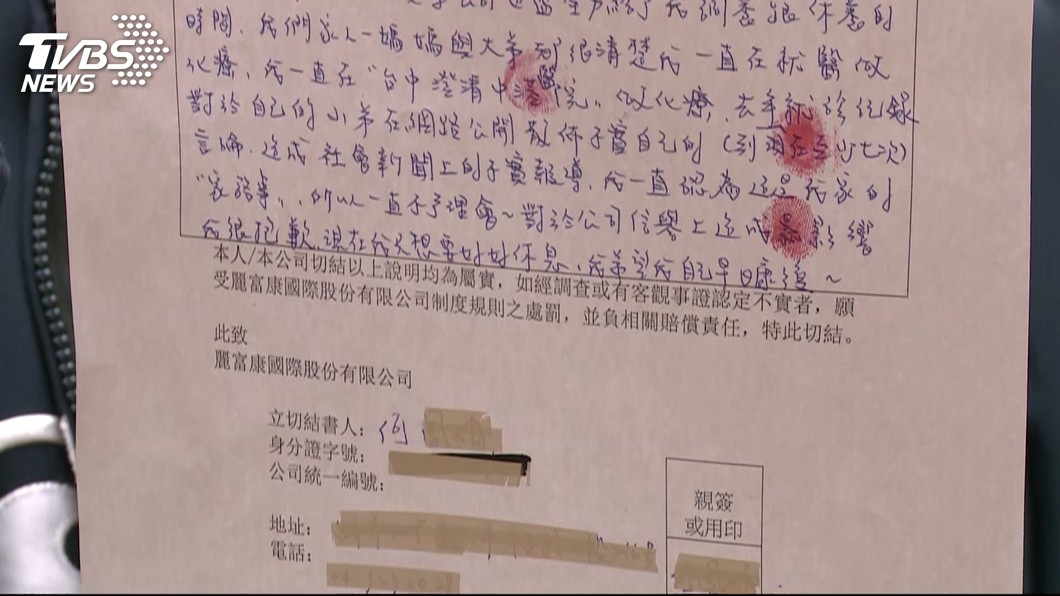 TVBS
NEWS
時間，我們家人一媽媽與大弟都很清楚我一直在就醫做
化療，我一直在"台中澄清中港醫院"做化療，去年就診紀錄
對於自己的小弟在網路公開散佈不實自己的（到現在至少七次）
言論，造成社會新聞上的不實報導，我一直認為這是我家的
"家務事"，所以一直不予理會～對於公司信譽上造成影響
我很抱歉，現在我只想要好好休息，我希望我自己早日康復～
本人/本公司切結以上說明均為屬實，如經調查或有客觀事證認定不實者，願
受麗富康國際股份有限公司制度規則之處罰，並負相關賠償責任，特此切結。
此致
麗富康國際股份有限公司
立切結書人：何
身分證字號：
公司統一編號：
親簽
或用印
地址：
電話：